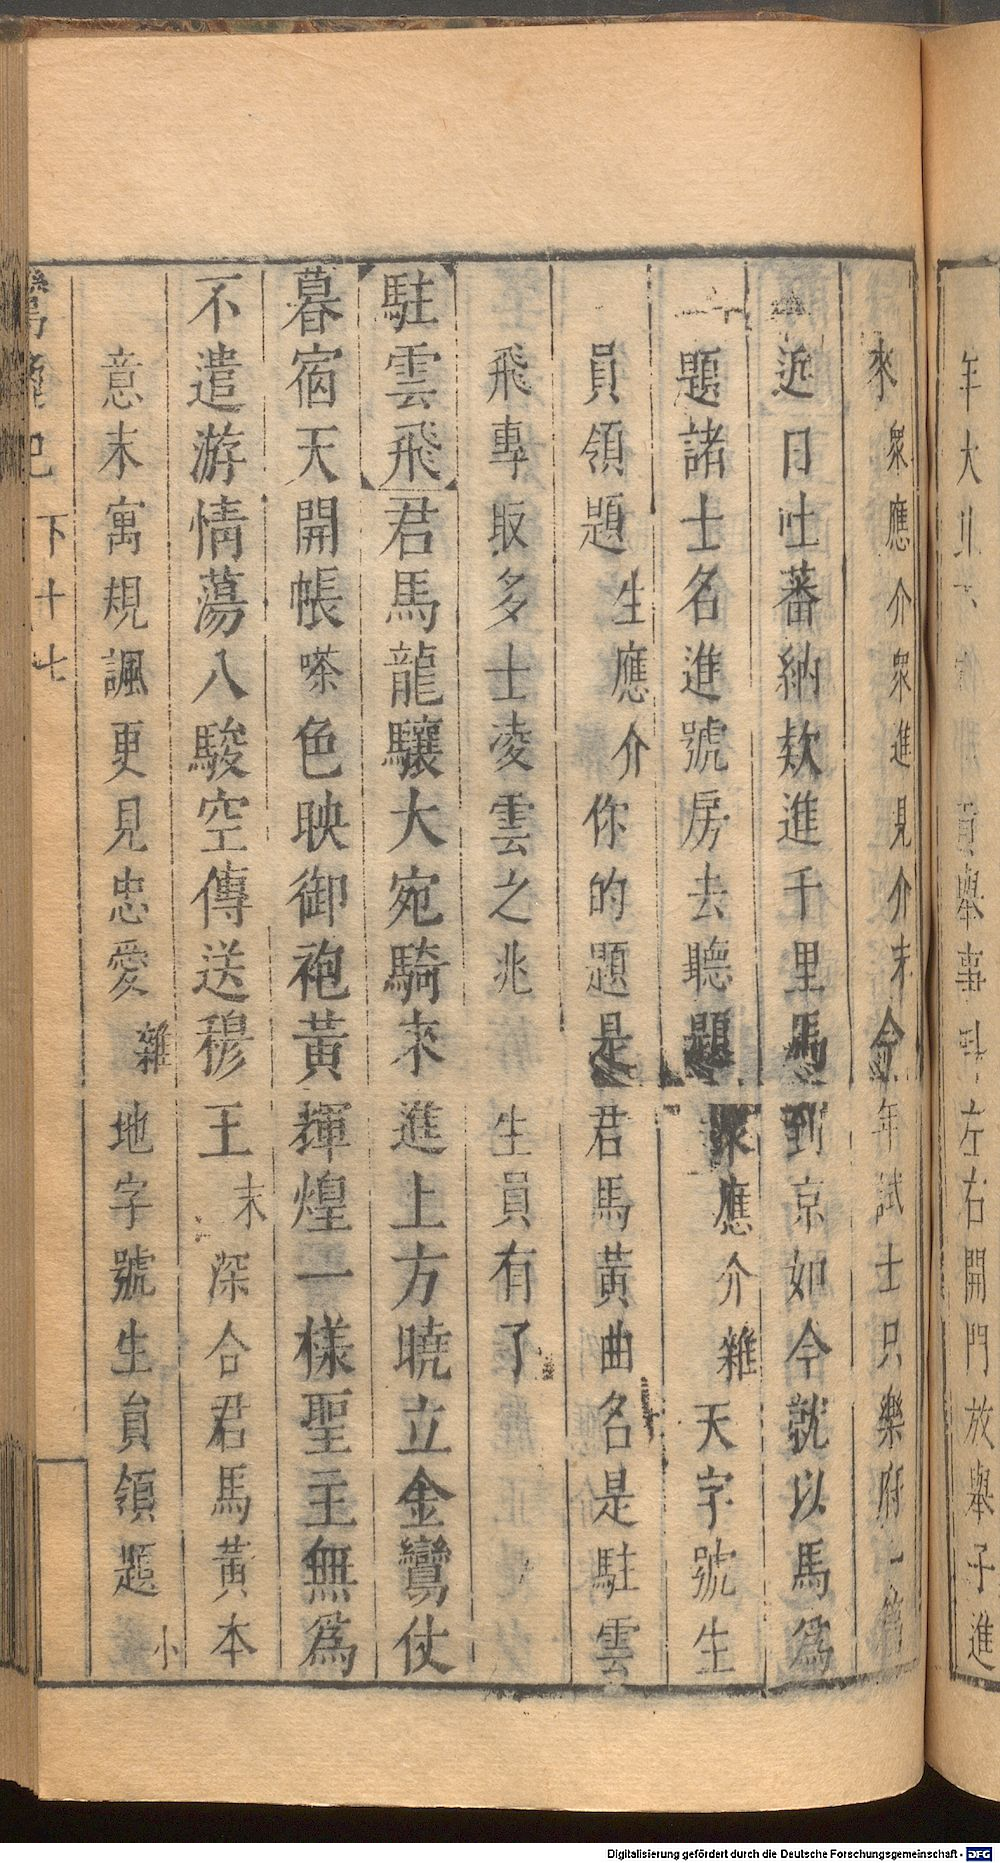 年大 貢舉事 左右開門放舉子進
來衆應介衆進見介末今年試士只樂府一篇
近日吐蕃納欵進千里馬到京如今就以馬爲
題諸士名進號房去聽題衆應介雜天字號生
員領題生應介你的題是君馬黃曲名是駐雲
飛專取多士凌雲之兆 生員有了
駐雲飛君馬龍驤大宛騎來進上方曉立金鸞仗
暮宿天開帳嗏色映御袍黃輝煌一樣聖主無爲
不遣游情蕩八駿空傳送穆王末深合君馬黃本
意末寓規諷更見忠愛雜地字號生員領題小
記 下十七
Digitalisierung gefördert durch die Deutsche Forschungsgemeinschaft - DFG